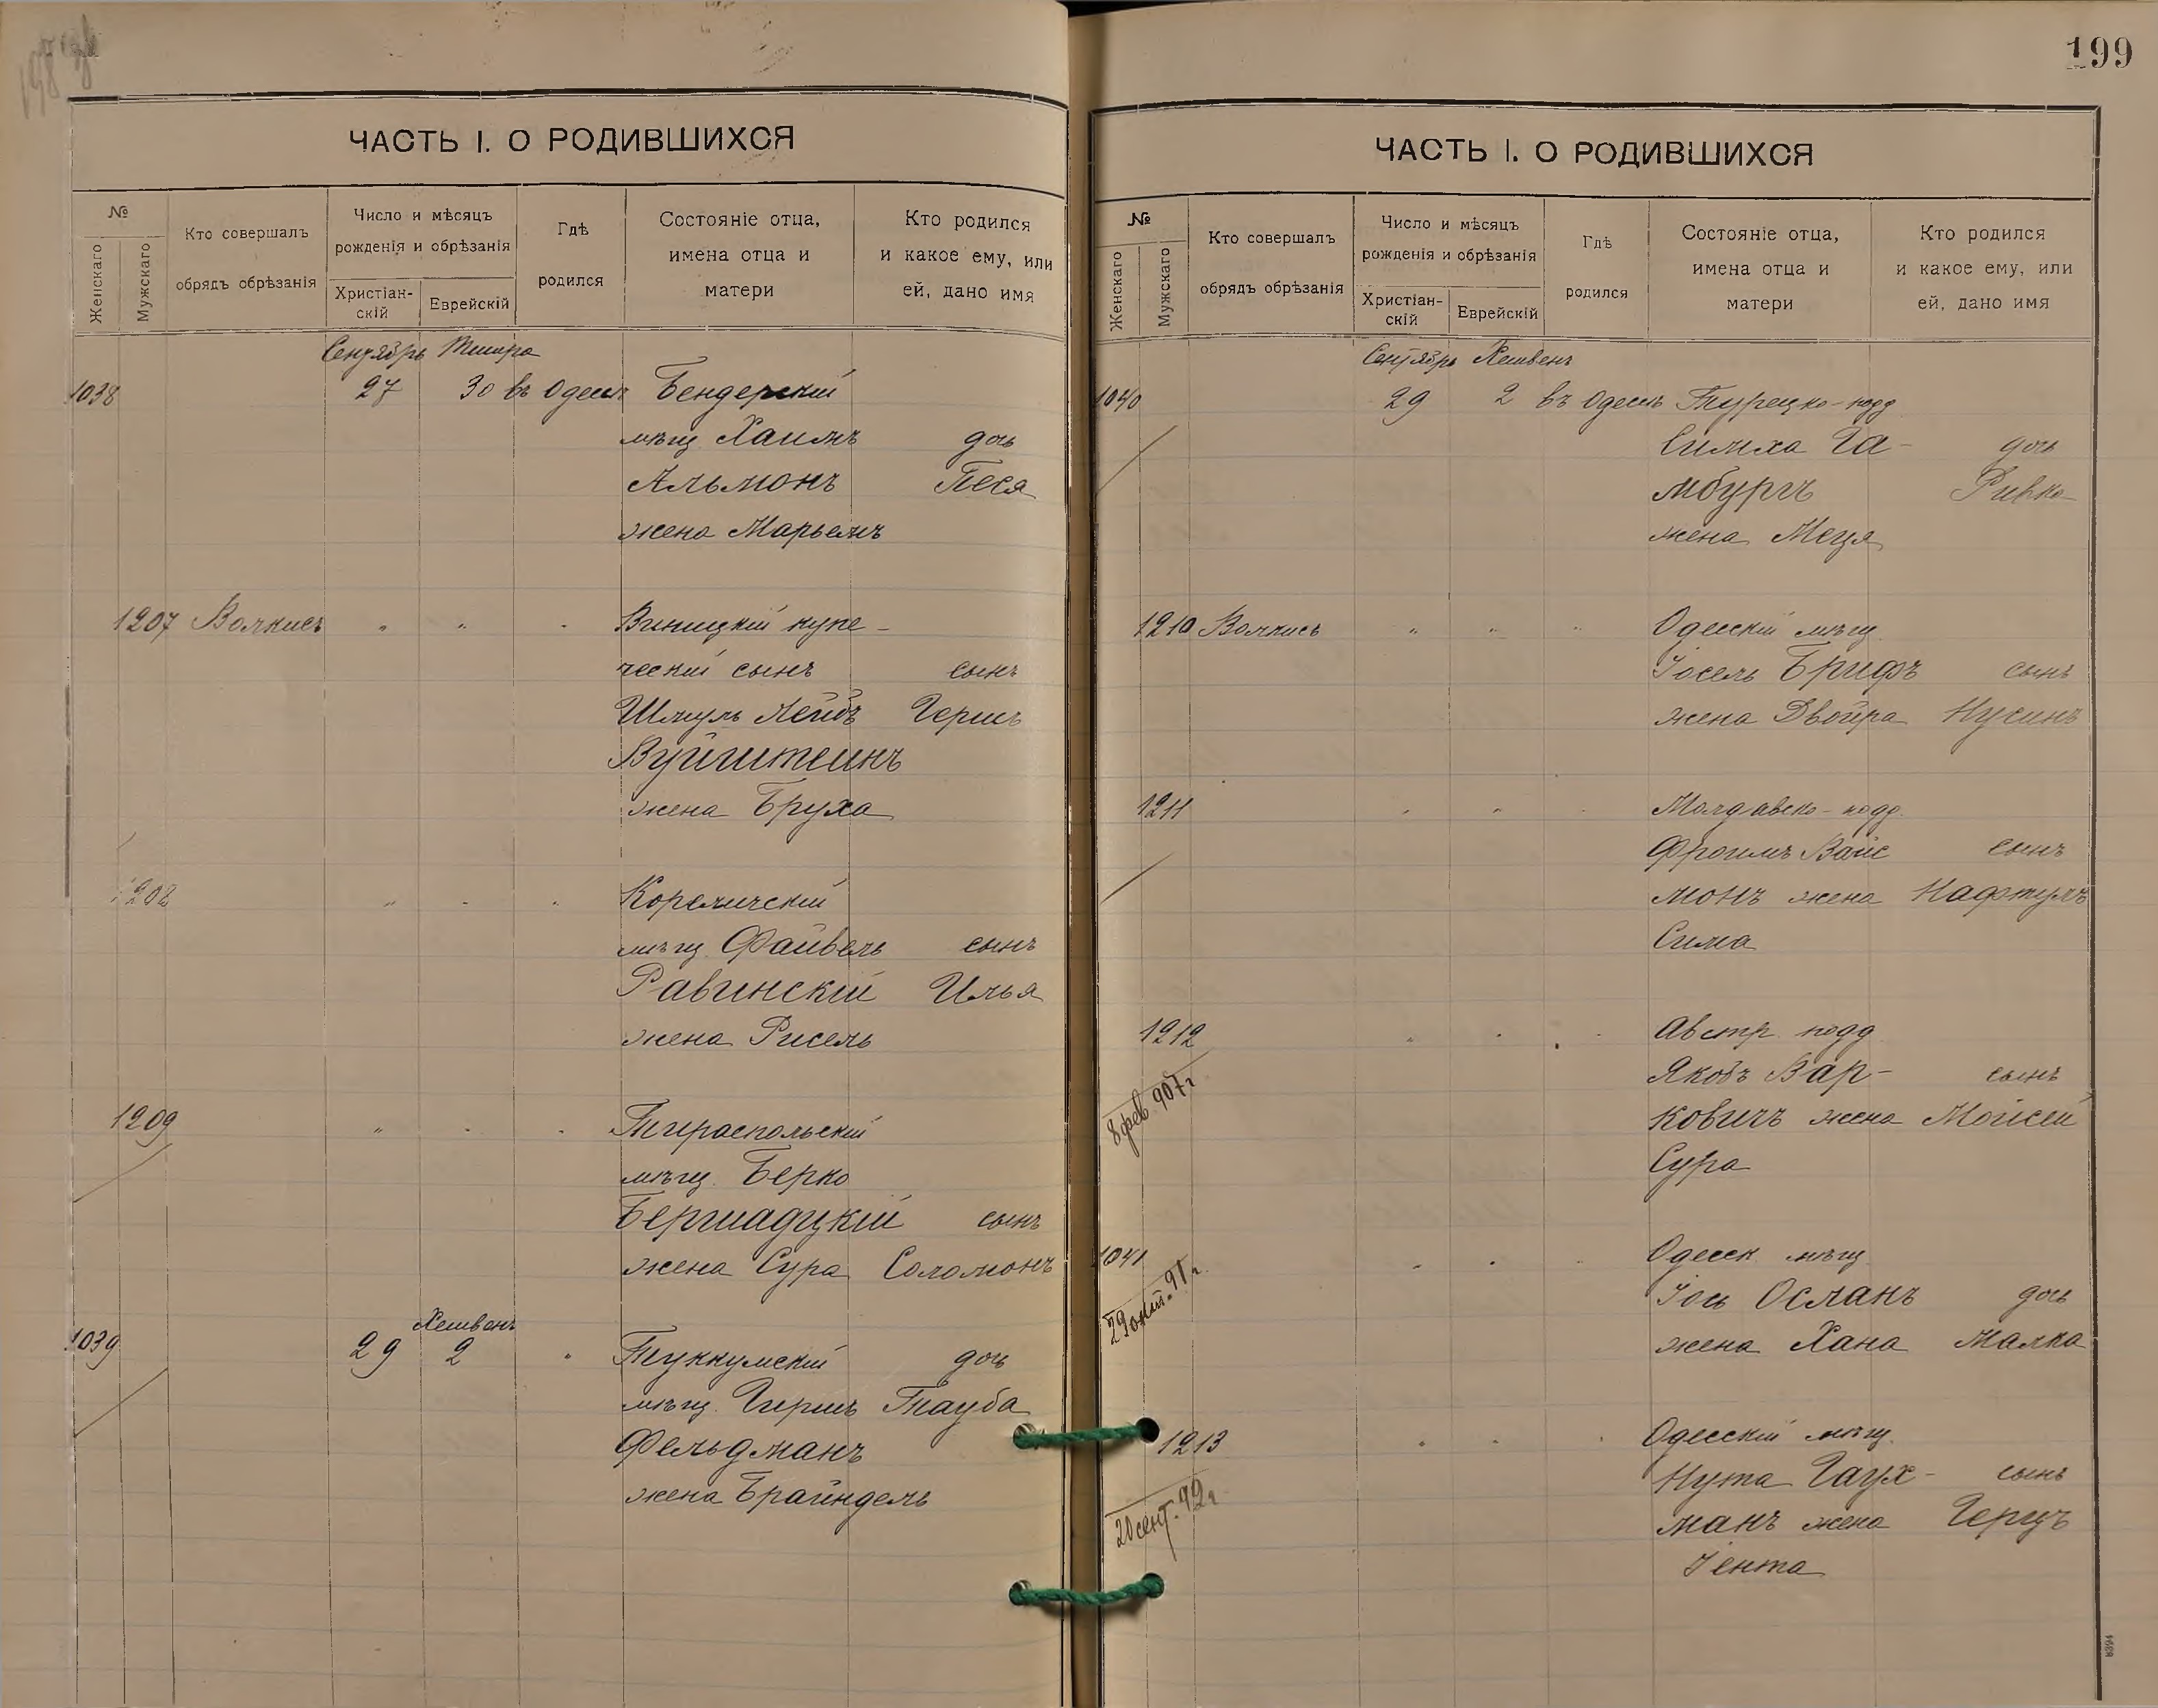 ЧАСТЬ I. О РОДИВШИХСЯ
№
Женскаго
Мужскаго
Кто совершалъ
обрядъ обрѣзанія
Число и мѣсяцъ
рожденія и обрѣзанія
Христіан-
скій
Еврейскій
Гдѣ
родился
Состояніе отца,
имена отца и
матери
Кто родился
и какое ему, или
ей, дано имя
Сентябрь Тишра
1038 27 30 въ Одессѣ Бендерскій
мѣщ. Хаимъ дочь
Альмонъ Песя
жена Марьемъ
1207 Волкисъ " " " Виницкій купе-
ческій сынъ сынъ
Шмуль Лейбъ Гершъ
Вуйгитеинъ
жена Бруха
1208 " " " Кореличскій
мѣщ. Файвель сынъ
Равинскій Илья
жена Рисель
1209 " " " Тираспольскій
мѣщ. Берко
Бершадцкій сынъ
жена Сура Соломонъ
Хешвенъ
1039 29 2 " Туккумскій дочь
мѣщ. Гиршъ Тауба
Фельдманъ
жена Брайндель
199
ЧАСТЬ I. О РОДИВШИХСЯ
№
Женскаго
Мужскаго
Кто совершалъ
обрядъ обрѣзанія
Число и мѣсяцъ
рожденія и обрѣзанія
Христіан-
скій
Еврейскій
Гдѣ
родился
Состояніе отца,
имена отца и
матери
Кто родился
и какое ему, или
ей, дано имя
Сентябрь Хешвенъ
1040 29 2 въ Одессѣ Турецко-подд
Симха Га- дочь
мбургъ Ривка
жена Меця
1210 Волкисъ " " " Одесскій мѣщ.
Іосель Брифъ сынъ
жена Двойра Нусинъ
1211 " " " Молдавско-подд.
Фроимъ Вайс сынъ
монъ жена Нафтулъ
Сима
1212 " " " Австр. подд
8 фев. 907 г
Якобъ Вар- сынъ
ковичъ жена Мойсей
Сура
1041 " " " Одесск. мѣщ.
Іось Осланъ дочь
жена Хана Малка
1213 " " " Одесскій мѣщ.
20 сент. 92 г
Нута Гаух- сынъ
манъ жена Герцъ
Іента
8394